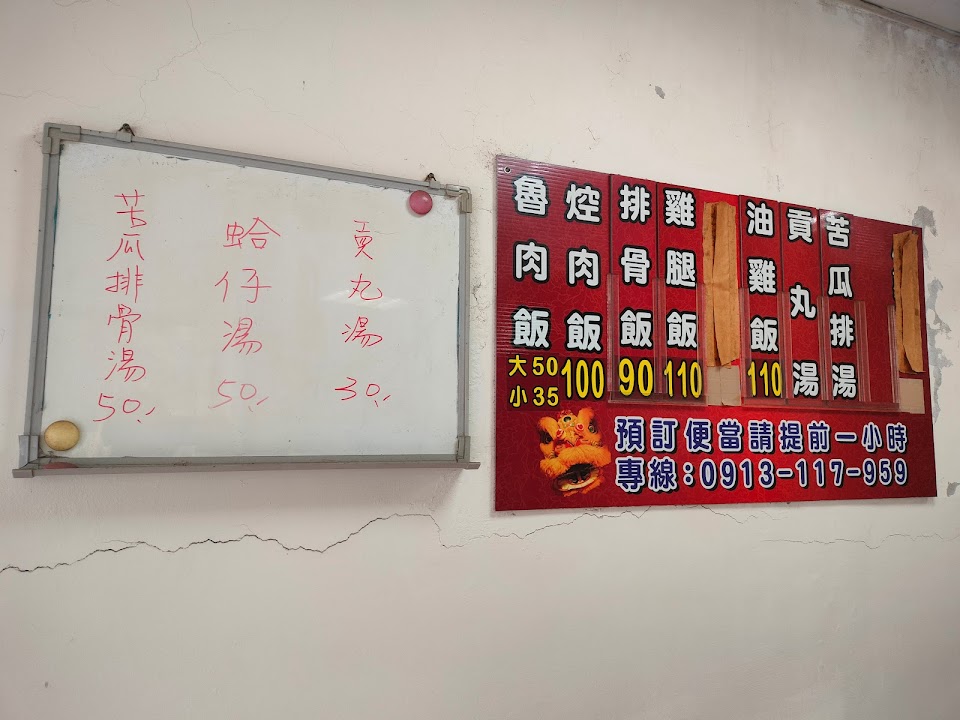 苦瓜排骨湯 50.
蛤仔湯 50.
貢丸湯 30.
魯肉飯 大50 小35
焢肉飯 100
排骨飯 90
雞腿飯 110
油雞飯 110
貢丸湯
苦瓜排湯
預訂便當請提前一小時
專線:0913-117-959